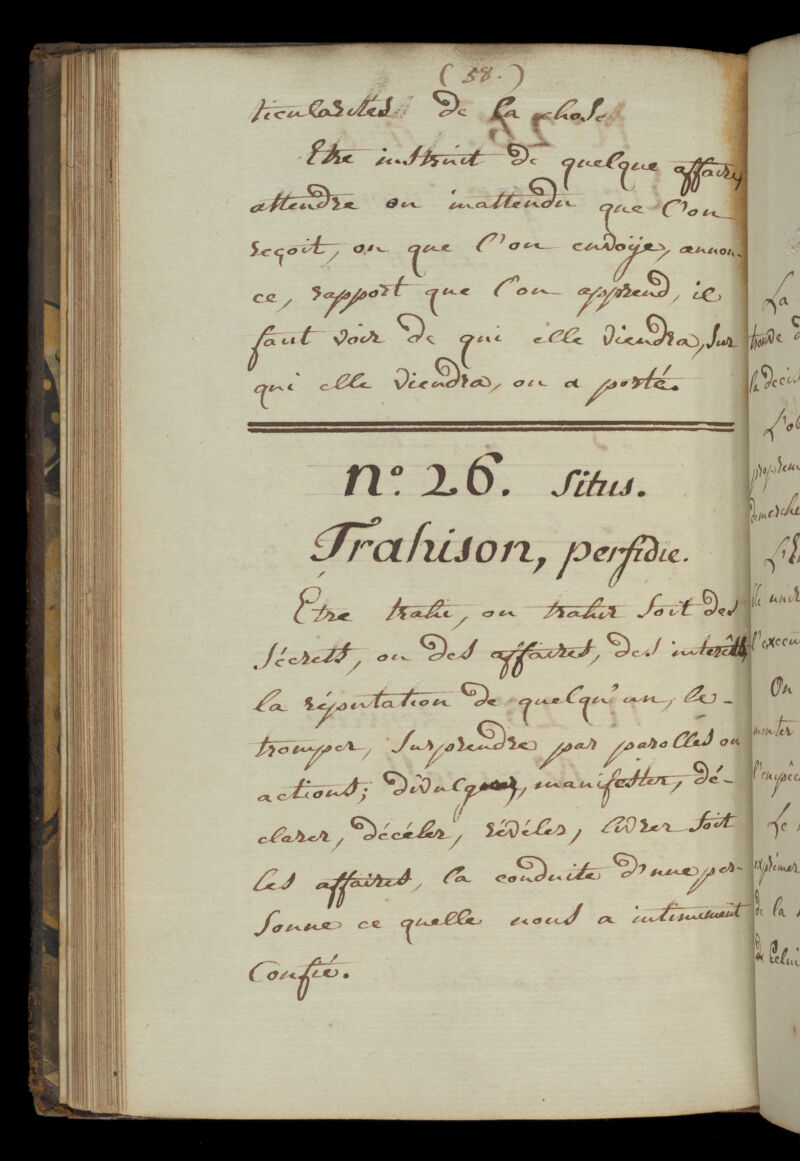 ( 58. )
ticularités de la chose
Etre instruit de quelque affaire,
attendre ou inattendu que l'on
reçoit, ou que l'on envoÿe, annon-
ce, rapport que l'on apprend, il
faut voir de qui elle viendra, sur
qui elle viendra, ou a porté.
n.o 26. Situs.
Trahison, perfidie.
Être trahi, ou trahir soit des
sécrets, ou des affaires, des interêts,
la réputation de quelqu'un, le-
tromper, surprendre par parolles ou
actions; divulguer, manifester, dé-
clarer, décéler, révéler, livrer soit
les affaires, la conduite d'une per-
sonne ce quelle nous a intimement
Confié.
La
trouve d
la decis
L'ob
proprem
demarche
L'E
le unir
l'execu
On
monter
l'empêc
Le
exprimer
de la
de Celui